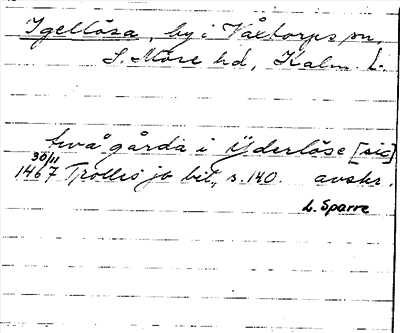 Igellösa, by i Växtorps sn,
S. Möre hd, Kalm. L.
två gårda i Yderlöse [sic]
30/11
1467 Trolles jb bil, s. 140. avskr.
L. Sparre